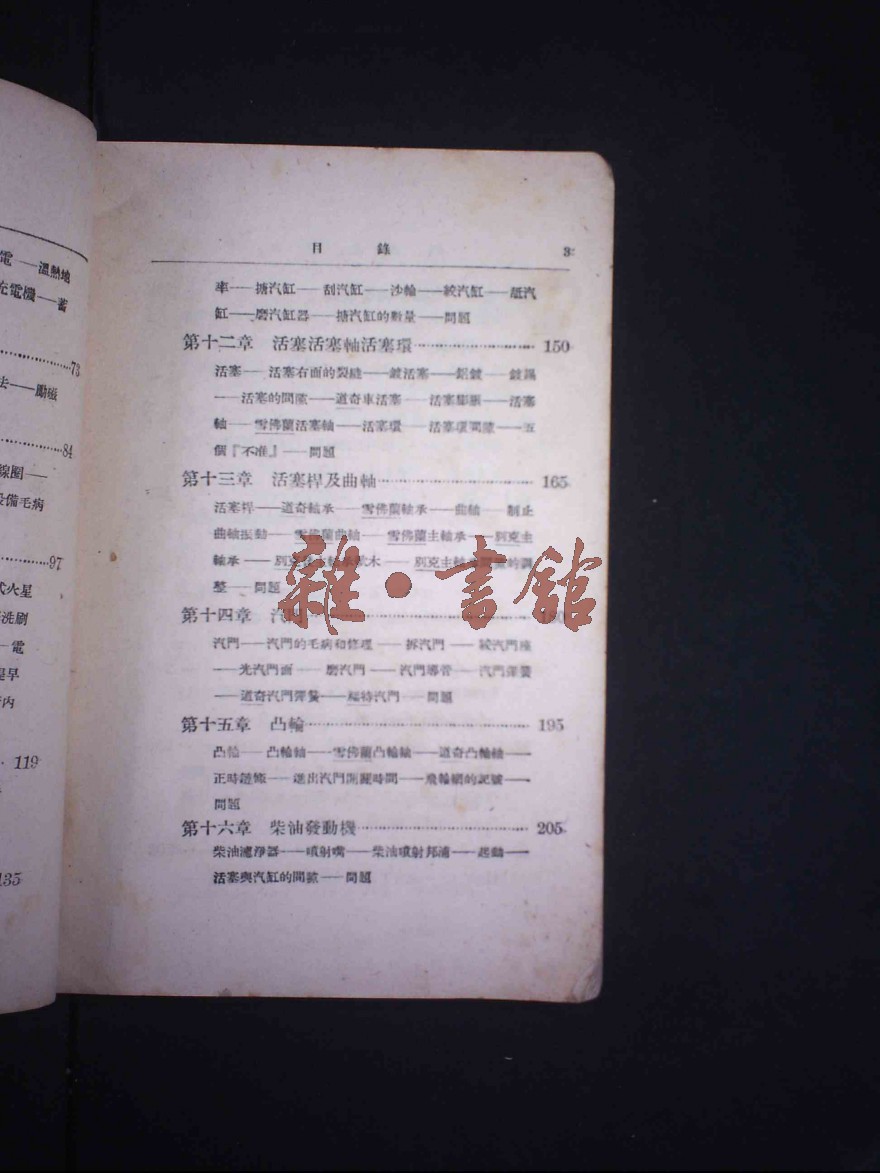 電——溫熱地
充電機——蓄
73
法——勵磁
84
線圈——
設備毛病
97
式火星
洗刷
——電
提早
內
119
135
目 錄 3
車——搪汽缸——刮汽缸——沙輪——絞汽缸——舐汽
缸——磨汽缸器——搪汽缸的數量——問題
第十二章 活塞活塞軸活塞環 150
活塞——活塞右面的裂縫——鍍活塞——鋁鍍——鍍錫
——活塞的間隙——道奇車活塞——活塞膨脹——活塞
軸——雪佛蘭活塞軸——活塞環——活塞環間隙——五
個『不准』——問題
第十三章 活塞桿及曲軸 165
活塞桿——道奇軸承——雪佛蘭軸承——曲軸——制止
曲軸振動——雪佛蘭曲軸——雪佛蘭主軸承——別克主
軸承——別克主軸承軟木——別克主軸承間隙的調
整——問題
雜·書館
第十四章 汽門
汽門——汽門的毛病和修理——拆汽門——絞汽門座
——光汽門面——磨汽門——汽門導管——汽門彈簧
——道奇汽門彈簧——福特汽門——問題
第十五章 凸輪 195
凸輪——凸輪軸——雪佛蘭凸輪軸——道奇凸輪軸——
正時鏈條——進出汽門開關時間——飛輪網的記號——
問題
第十六章 柴油發動機 205
柴油濾淨器——噴射嘴——柴油噴射邦浦——起動——
活塞與汽缸的間隙——問題